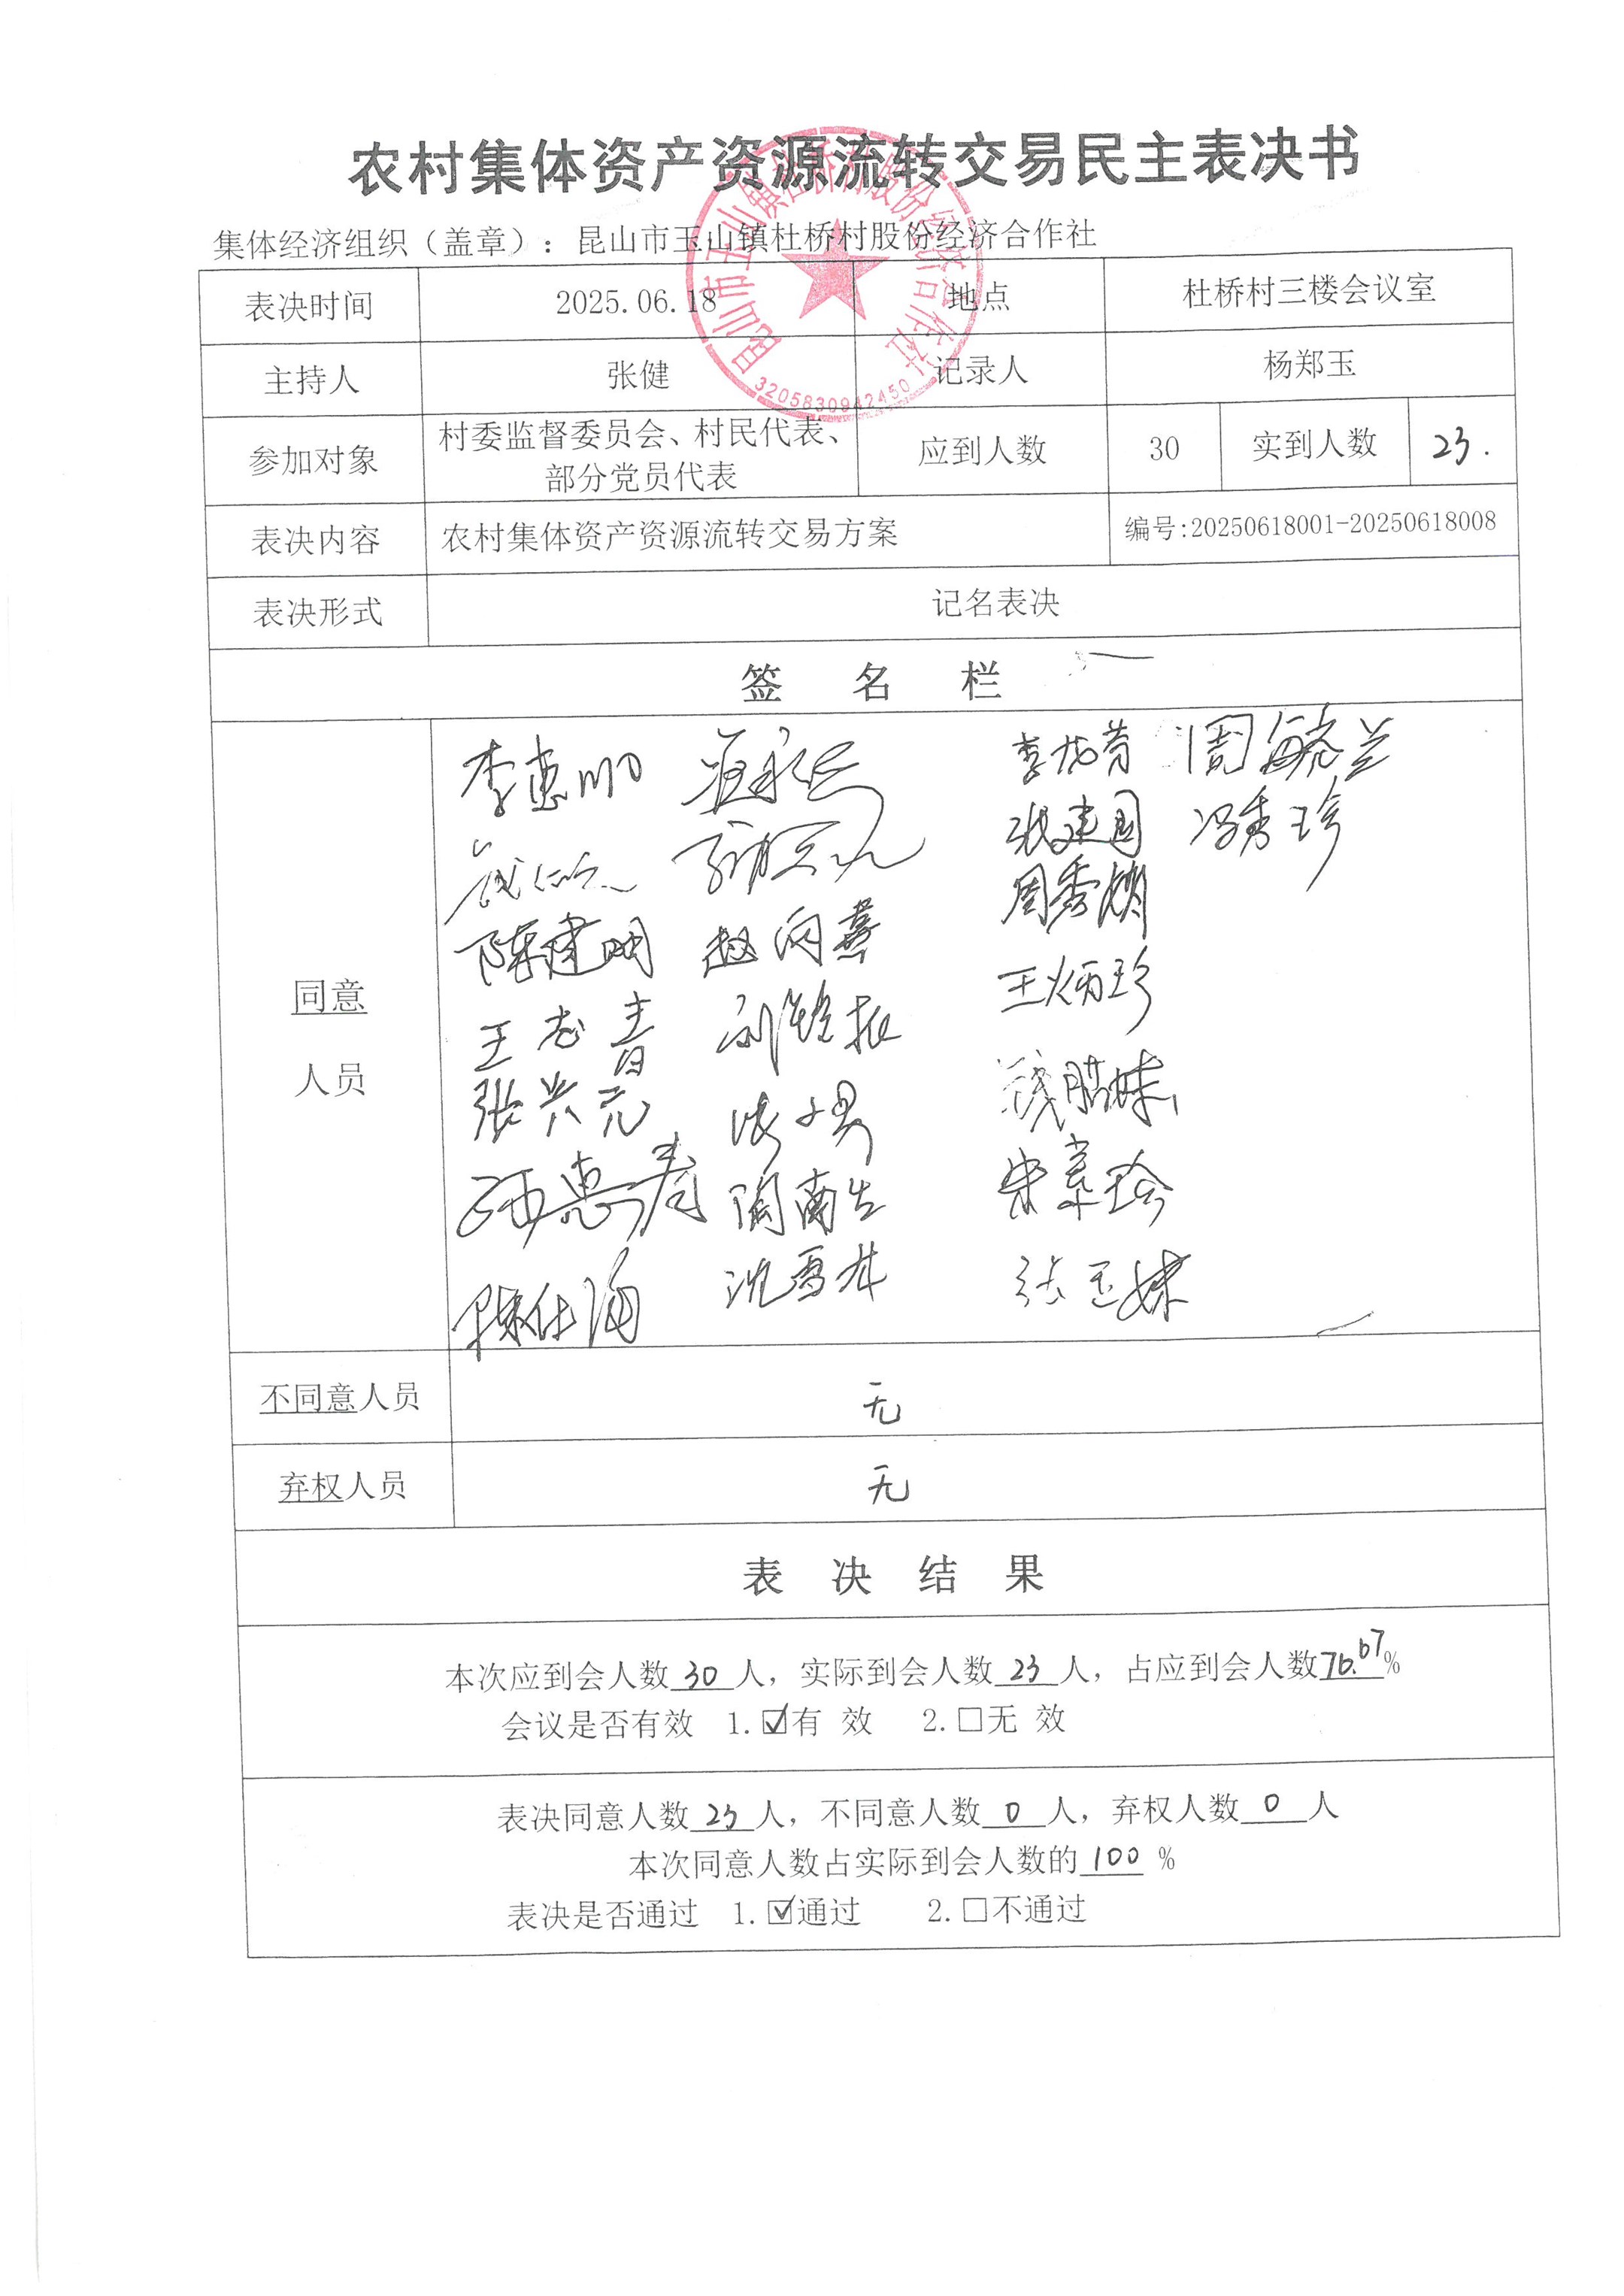 农村集体资产资源流转交易民主表决书
集体经济组织（盖章）：昆山市玉山镇杜桥村股份经济合作社
昆山市玉山镇杜桥村股份经济合作社
3205830942450
表决时间 2025.06.18 地点 杜桥村三楼会议室
主持人 张健 记录人 杨郑玉
参加对象 村委监督委员会、村民代表、
部分党员代表 应到人数 30 实到人数 23.
表决内容 农村集体资产资源流转交易方案 编号:20250618001-20250618008
表决形式 记名表决
签 名 栏
同意
人员
李惠明 周毓兰
张建国 冯秀珍
周秀娥
陈建明 赵向喜
王炳珍
王志青
张兴元
钱腊妹
朱素珍
沈雪林
张玉妹
不同意人员 无
弃权人员 无
表 决 结 果
本次应到会人数30人，实际到会人数23人，占应到会人数76.67%
会议是否有效 1.☑有 效 2.□无 效
表决同意人数23人，不同意人数0人，弃权人数0人
本次同意人数占实际到会人数的100 %
表决是否通过 1.☑通过 2.□不通过